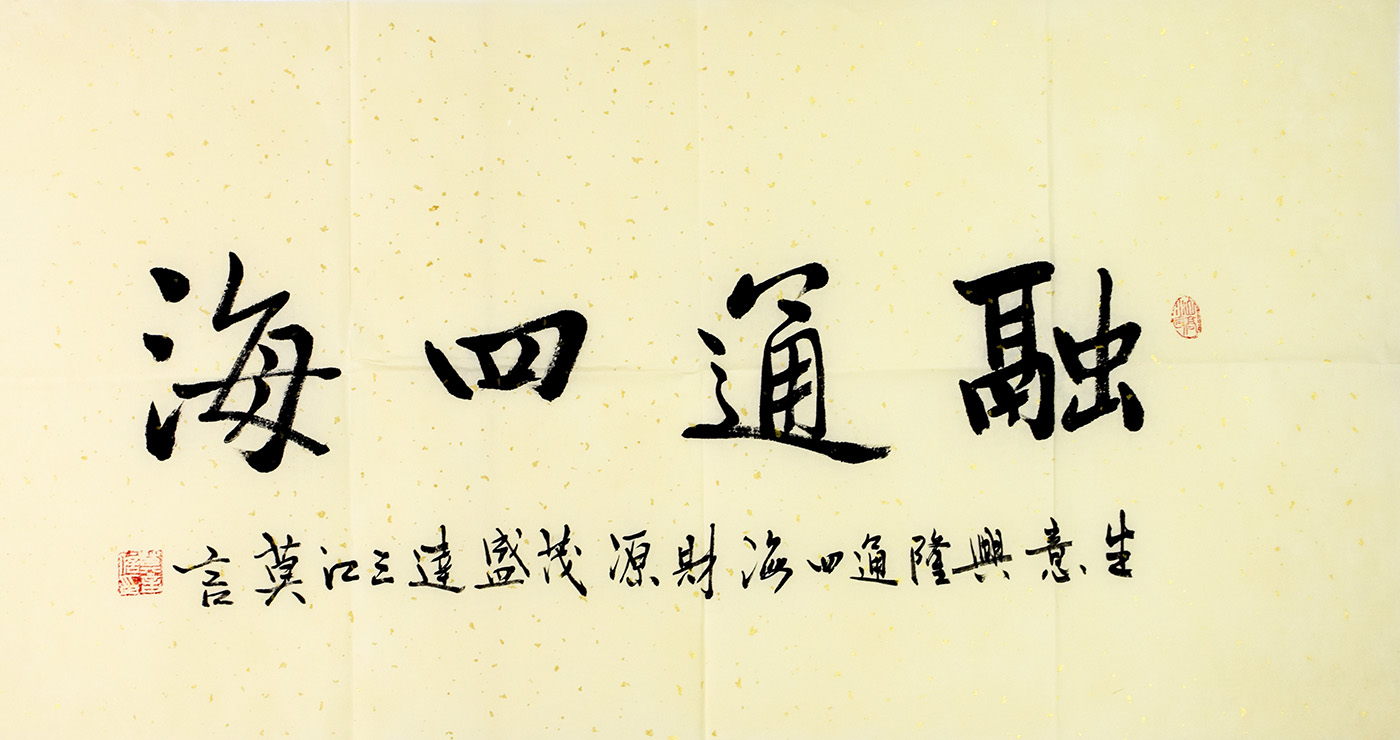 融通四海
生意興隆通四海財源茂盛達三江莫言